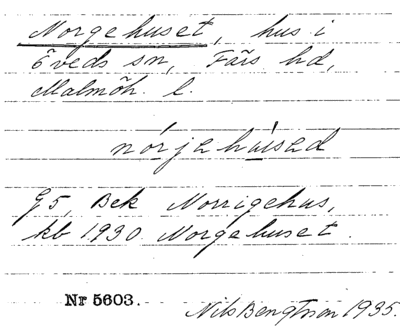 Norgehuset, hus i
Öveds sn, Färs hd,
Malmöh. l.
nórjahùsad
G5, Bek Norrigehus,
kb 1930 Norgehuset.
Nr 5603.
Nils Bengtsson 1935.